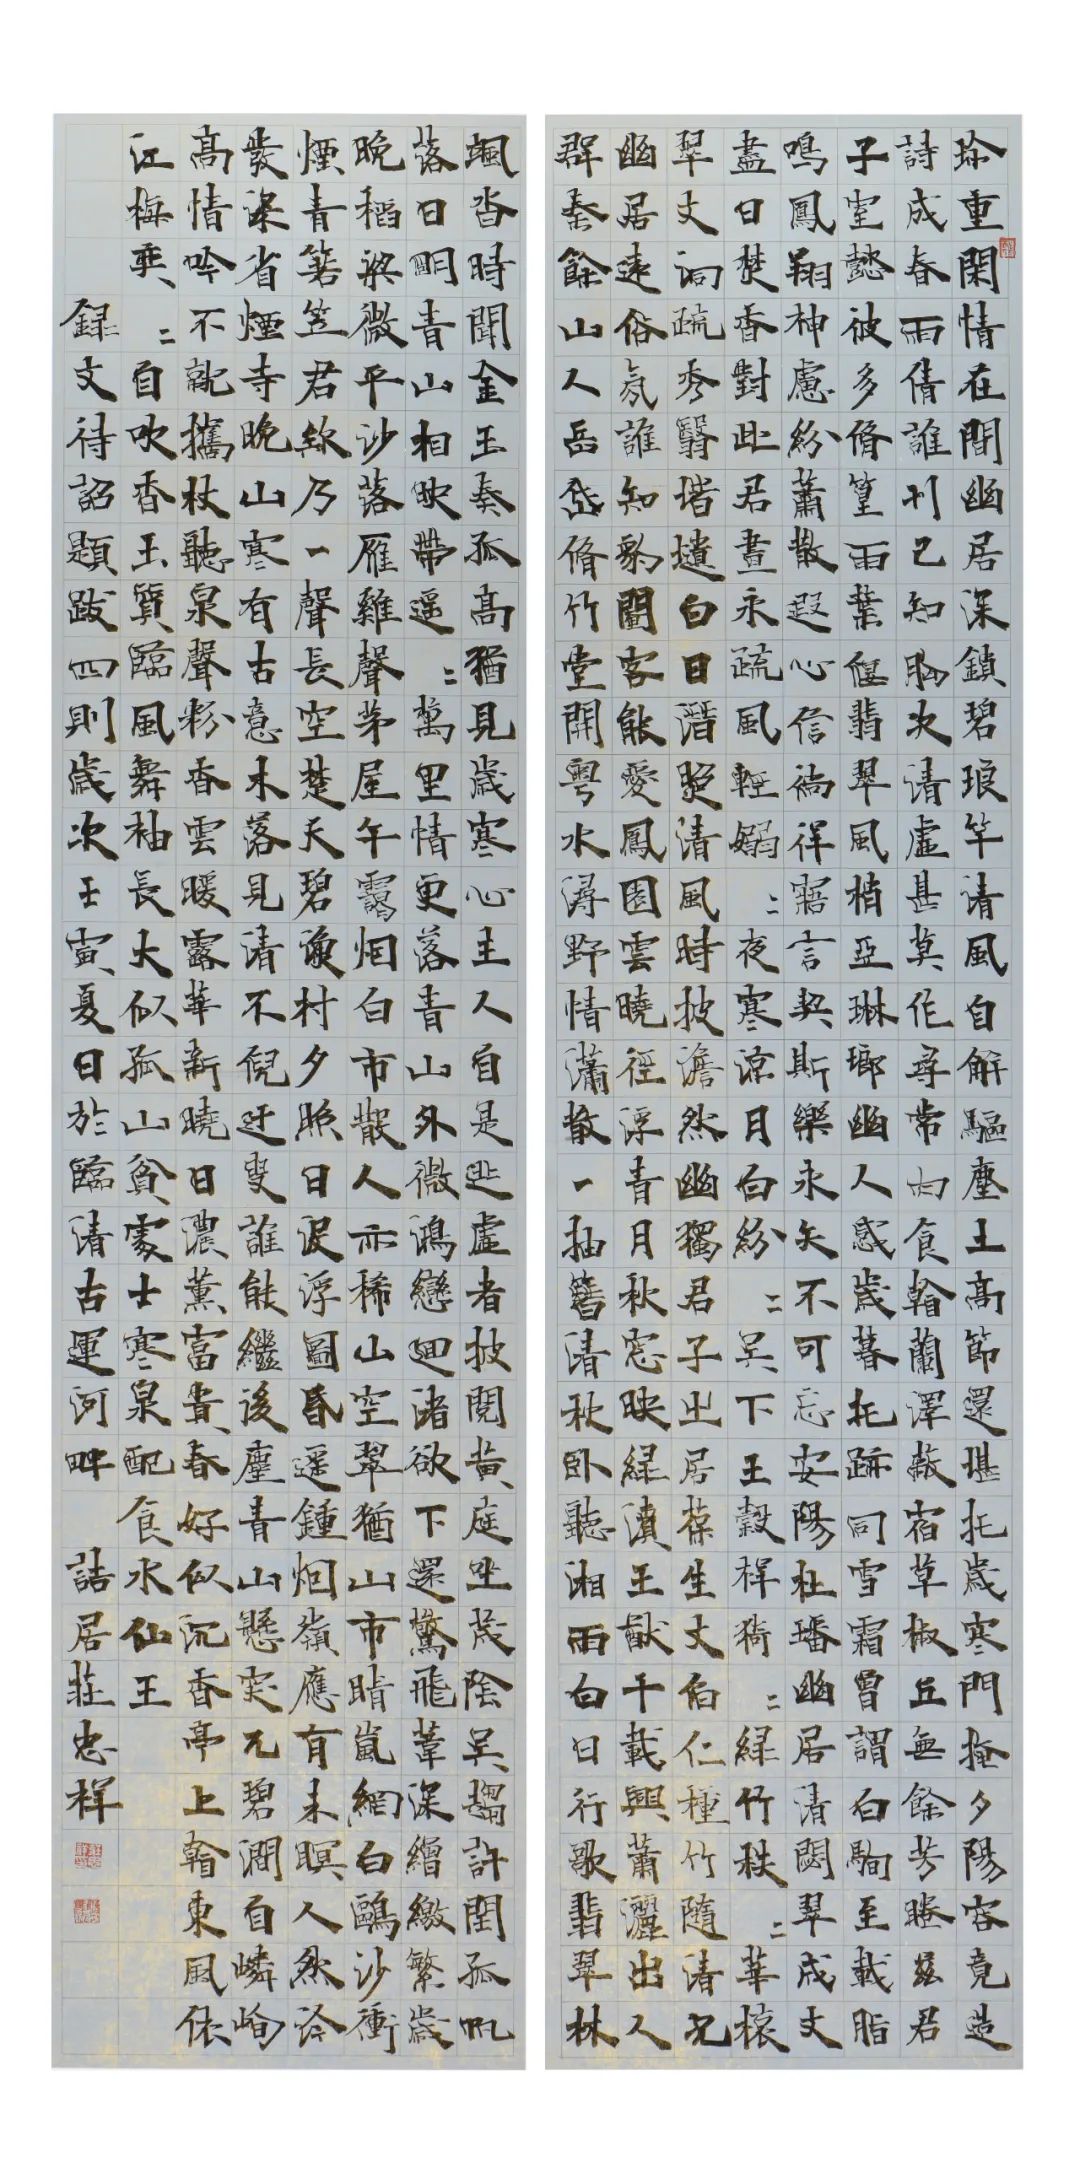 珍重閑情在闇幽居深鎖碧琅竿清風自解驅塵土高節還堪托歲寒門掩夕陽客竟造
詩成春雨倩誰刊已知胸次清虛甚莫作尋常肉食翰蘭澤蔽宿草椒丘無餘芳睠茲君
子室懿彼多脩篁雨葉偃翡翠風梢亞琳瑯幽人感歲暮托跡同雪霜曾謂白駒至載脂
鳴鳳翔神慮紛蕭散遐心信褵徉寤言契斯樂永矢不可忘安陽杜璠幽居清閟翠成丈
盡日焚香對此君晝永疏風輕嫋〻夜寒涼月白紛〻吳下王穀祥猗〻綠竹秩〻華榱
翠丈洞疏秀翳堦墻白日潛照清風時披澹然幽獨君子之居葆生丈伯仁種竹隨清兄
幽居遠俗氛誰知豹闗客能愛鳳園雲曉徑浮青月秋窓映綠濆王猷千載興蕭灑出人
群秦餘山人岳岱脩竹堂開粵水潯野情瀟散一抽簪清秋卧聽湘雨白日行歌翡翠林
颯沓時聞金玉奏孤高猶見歲寒心主人自是逃虛者披閱黃庭坐茂陰吳趨許閏孤帆
落日明青山相映帶遥〻萬里情更落青山外微鴻戀迴渚欲下還驚飛葦深繒繳繁歲
晚稻粱微平沙落雁雞聲茅屋午靄烟白市散人亦稀山空翠猶山市晴嵐網白鷗沙衝
煙青箬笠君欸乃一聲長空楚天碧漁村夕照日淚浮圖昏遥鍾烟嶺應有未瞑人欲洽
發深省煙寺晚山寒有古意木落見清不倪迂叟誰能繼後塵青山懸突兀碧澗自嶙峋
高情吟不就攜杖聽泉聲粉香雲暖露華新曉日濃薰富貴春好似沉香亭上翰東風依
江梅奭〻自吹香玉質臨風舞袖長大似孤山貧處士寒泉配食水仙王
錄文待詔題跋四則歲次壬寅夏日於臨清古運河畔 詰居莊忠祥